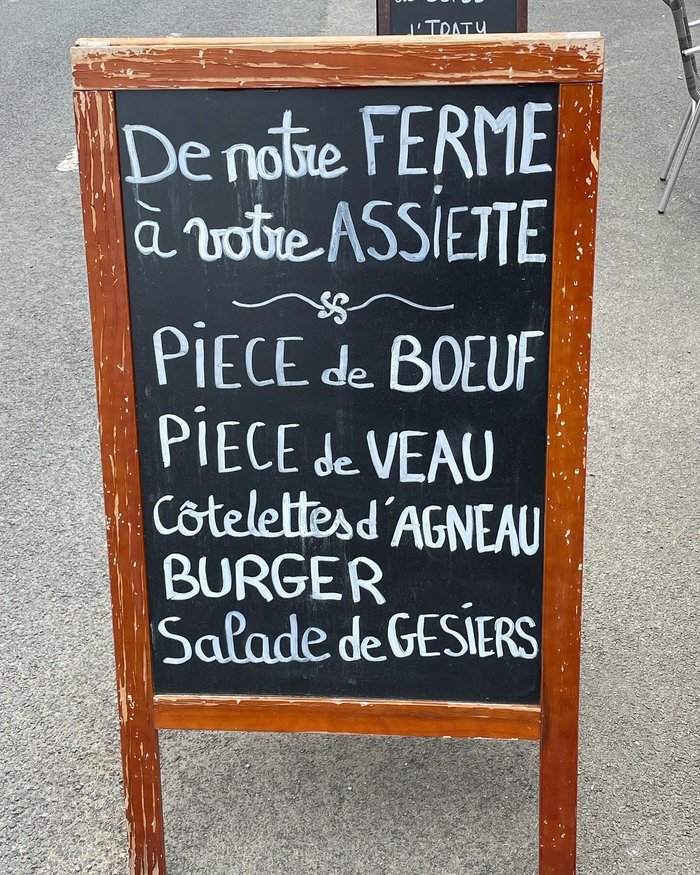 l'IRATY
De notre FERME
à votre ASSiETTE
PiECE de BOEUF
PiECE de VEAU
Côtelettes d'AGNEAU
BURGER
Salade de GESiERS